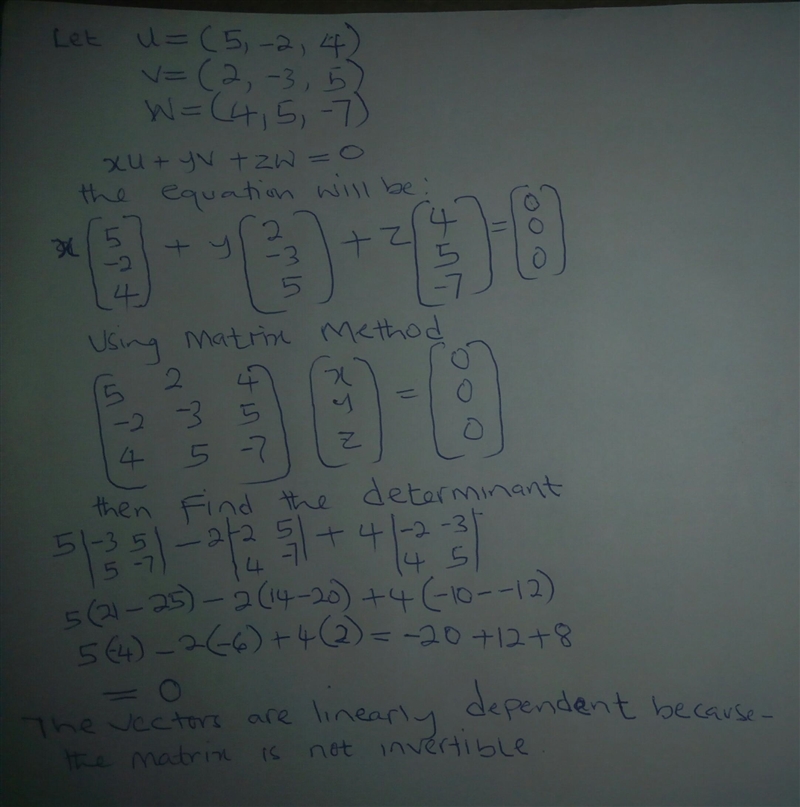 Let U = (5, -2, 4)
V = (2, -3, 5)
W = (4, 5, -7)
xU + yV + zW = 0
the equation will be:
x(5 -2 4) + y(2 -3 5) + z(4 5 -7) = (0 0 0)
Using Matrix Method
(5 2 4
-2 -3 5
4 5 -7) (x y z) = (0 0 0)
then Find the determinant
5|-3 5 5 -7| - 2|-2 5 4 -7| + 4|-2 -3 4 5|
5(21 - 25) - 2(14 - 20) + 4(-10 - -12)
5(-4) - 2(-6) + 4(2) = -20 + 12 + 8
= 0
The vectors are linearly dependent because-
the matrix is not invertible.